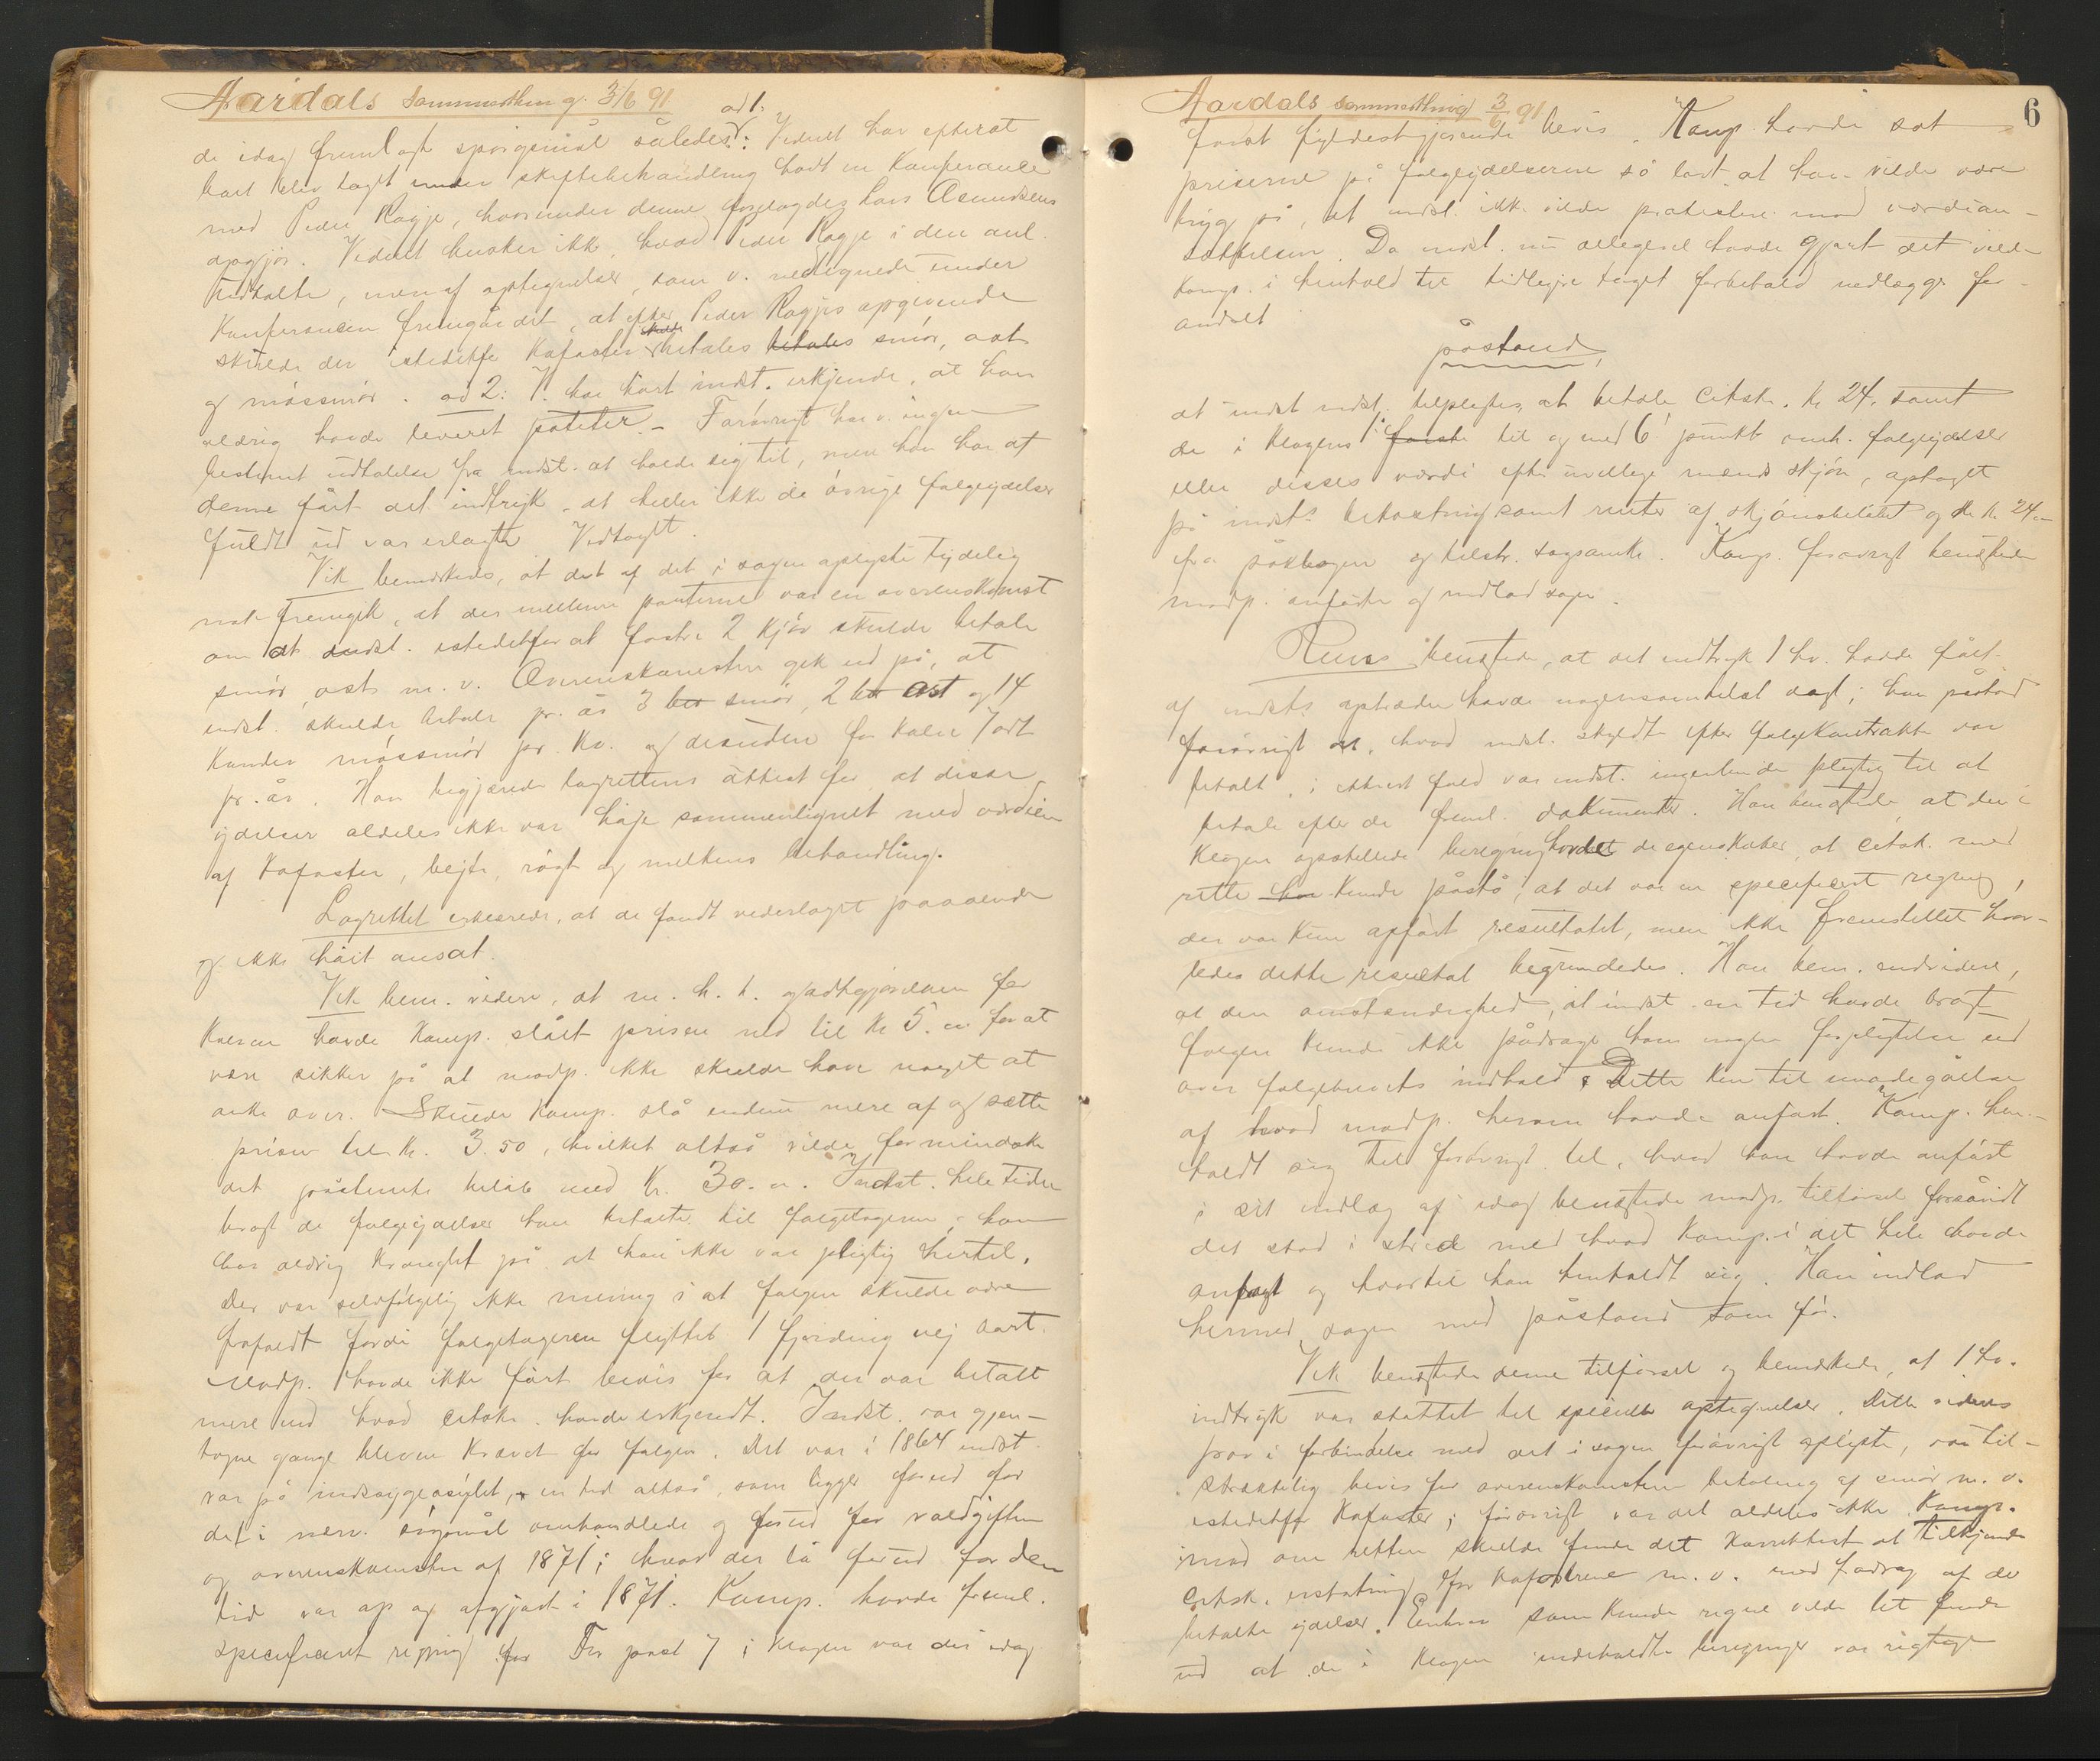 Aardals sommerthing 3/6 91
ad 1.
de idag fremlagte spörgsmål således: Vidnet har efterat
boet blev tagt under skiftebehandling havt en konferance
med Peder Ragje, hvorunder denne forelagdes Lars Asmundsens
opgjör. Vidnet husker ikke, hvad Peder Ragje i den anl.
udtalte, men af optegnelser, som v. nedtegnede under
konferancen fremgår det, at efter Peder Ragjes opgivende
skulde der istedetfor kofoster skulde betales betales smör, ost
og mössmör. ad 2: V. har hört indst. erkjende, at han
aldrig havde leveret poteter. – Forövrigt har v. ingen
bestemt udtalelse fra indst. at holde sig til, men han har af
denne fået det indtryk, at heller ikke de övrige folgeydelser
fuldt ud var erlagte. Vedtaget.
Vik bemærkede, at det af det i sagen oplyste tydelig
nok fremgik, at der mellem parterne var en overenskomst
om at indst. istedetfor at fostre 2 kjör skulde betale
smör, ost m. v. Overenskomsten gik ud på, at
indst. skulde betale pr. år 3 smör, 2 ost og 14
kander mössmör pr. ko. og desuden for kalve 1 ort
pr. år. Han begjærede lagrettens attest for, at disse
ydelser aldeles ikke var höje sammenlignet med værdien
af kofoster, bejte, rögt og melkens behandling.
Lagrettet erklærede, at de fandt vederlaget passende
og ikke höit ansat.
Vik bem. videre, at m. h. t. godtgjörelsen for
kalven havde komp. slået prisen ned til kr 5. for at
være sikker på at modp. ikke skulde have noget at
anke over. Skulde komp. slå endnu mere af og sætte
prisen til kr. 3.50, hvilket altså vilde formindske
det påstævnte belöb med kr. 30. Indst. hele tiden
bragt de folgeydelser han betalte til folgetageren; han
har aldrig kranglet på at han ikke var pligtig hertil.
Der var selvfölgelig ikke mening i at folgen skulde være
frafaldt fordi folgetageren flyttet 1 fjerding vej bort.
Modp. havde ikke fört bevis for at der var betalt
mere end hvad citske. havde erkjendt. Indst. var gjen-
tagne gange bleven krævet for folgen. Det var i 1864 indst.
var på sindssygeasylet, en tid altså, som ligger forud for
det i nærv. sögsmål omhandlede og forud for voldgiften
og overenskomsten af 1871; hvad der lå forud for den
tid var op og afgjort i 1871. Komp. havde freml.
specificeret regning. For post 7 i klagen var der idag
Aardals sommerthing 3/6 91
6
fört fyldestgjörende bevis. Komp. havde sat
priserne på folgeydelserne så lavt at han vilde være
tryg på, at indst. ikke vilde protestere mod værdian-
sættelsen. Da indst. nu allegevel havde gjort det vilde
komp. i henhold til tidligere taget forbehold nedlægge for-
andret
påstand,
at indst. tilpligtes at betale citske. kr 24, samt
de i klagens 1. til og med 6. punkt omh. folgeydelser
eller disses værdi efter uvillige mænds skjön, optaget
på indst. bekostning samt renter af skjönsbelöbet og kr 24.
fra påklagen og tilstr. sagsomk. Komp. forövrigt benægtede
modp. anförte og indlod sagen.
Rums benægtede, at det indtryk 1 hv. havde fået
af indst. optræden havde nogensomhelst vægt; han påstod
forövrigt at, hvad indst. skyldte efter folgekontrakten var
betalt, i ethvert fald var indst. ingenlunde pligtig til at
betale efter de freml. dokumenter. Han benægtede, at den i
klagen opstillede beregning havde de egenskaber, at citsk. med
rette kunde påstå, at det var en specificeret regning,
der var kun opfört resultatet, men ikke fremstillet hvor-
ledes dette resultat begrundedes. Han bem. endvidere,
at den omstændighed, at indst. en tid havde bragt
folgen kunde ikke pådrage ham nogen forpligtelse ud
over folgebrevets indhold. Dette kun til imödegåelse
af hvad modp. herom havde anfört. Komp. hen-
holdt sig til forövrigt til, hvad han havde anfört
i sit indlæg af idag benægtede modp. tilförsel forsåvidt
det stod i strid med hvad komp. i det hele havde
anfört og hvortil han henholdt sig. Han indlod
hermed sagen med påstand som för.
Vik benægtede denne tilförsel og bemærkede, at 1 hv.
indtryk var stöttet til specielle optegnelser. Dette vidnes
prov i forbindelse med det i sagen forövrigt oplyste, var til-
strækkelig bevis for overenskomsten betaling af smör m. v.
istedetfor kofoster; forövrigt var det aldeles ikke komp.
imod om retten skulde finde det korrektest at tilkjende
citsk. erstatning for kofostrene m. v. med fradrag af de
betalte ydelser. Enhver som kunde regne vilde let finde
ud at de i klagen indeholdte beregninger var rigtige